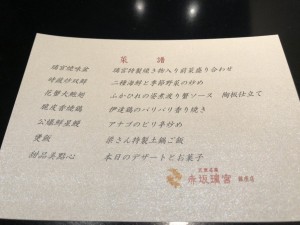 菜譜
璃宮焼味盆 璃宮特製焼き物入り前菜盛り合わせ
時蔬炒双鮮 二種海鮮と季節野菜の炒め
花蟹大鮑翅 ふかひれの姿煮渡り蟹ソース 陶板仕立て
脆皮香焼鶏 伊達鶏のパリパリ香り焼き
公爆鮮星鰻 アナゴのピリ辛炒め
煲飯 梁さん特製土鍋ご飯
甜品美點心 本日のデザートとお菓子
赤坂璃宮 銀座店